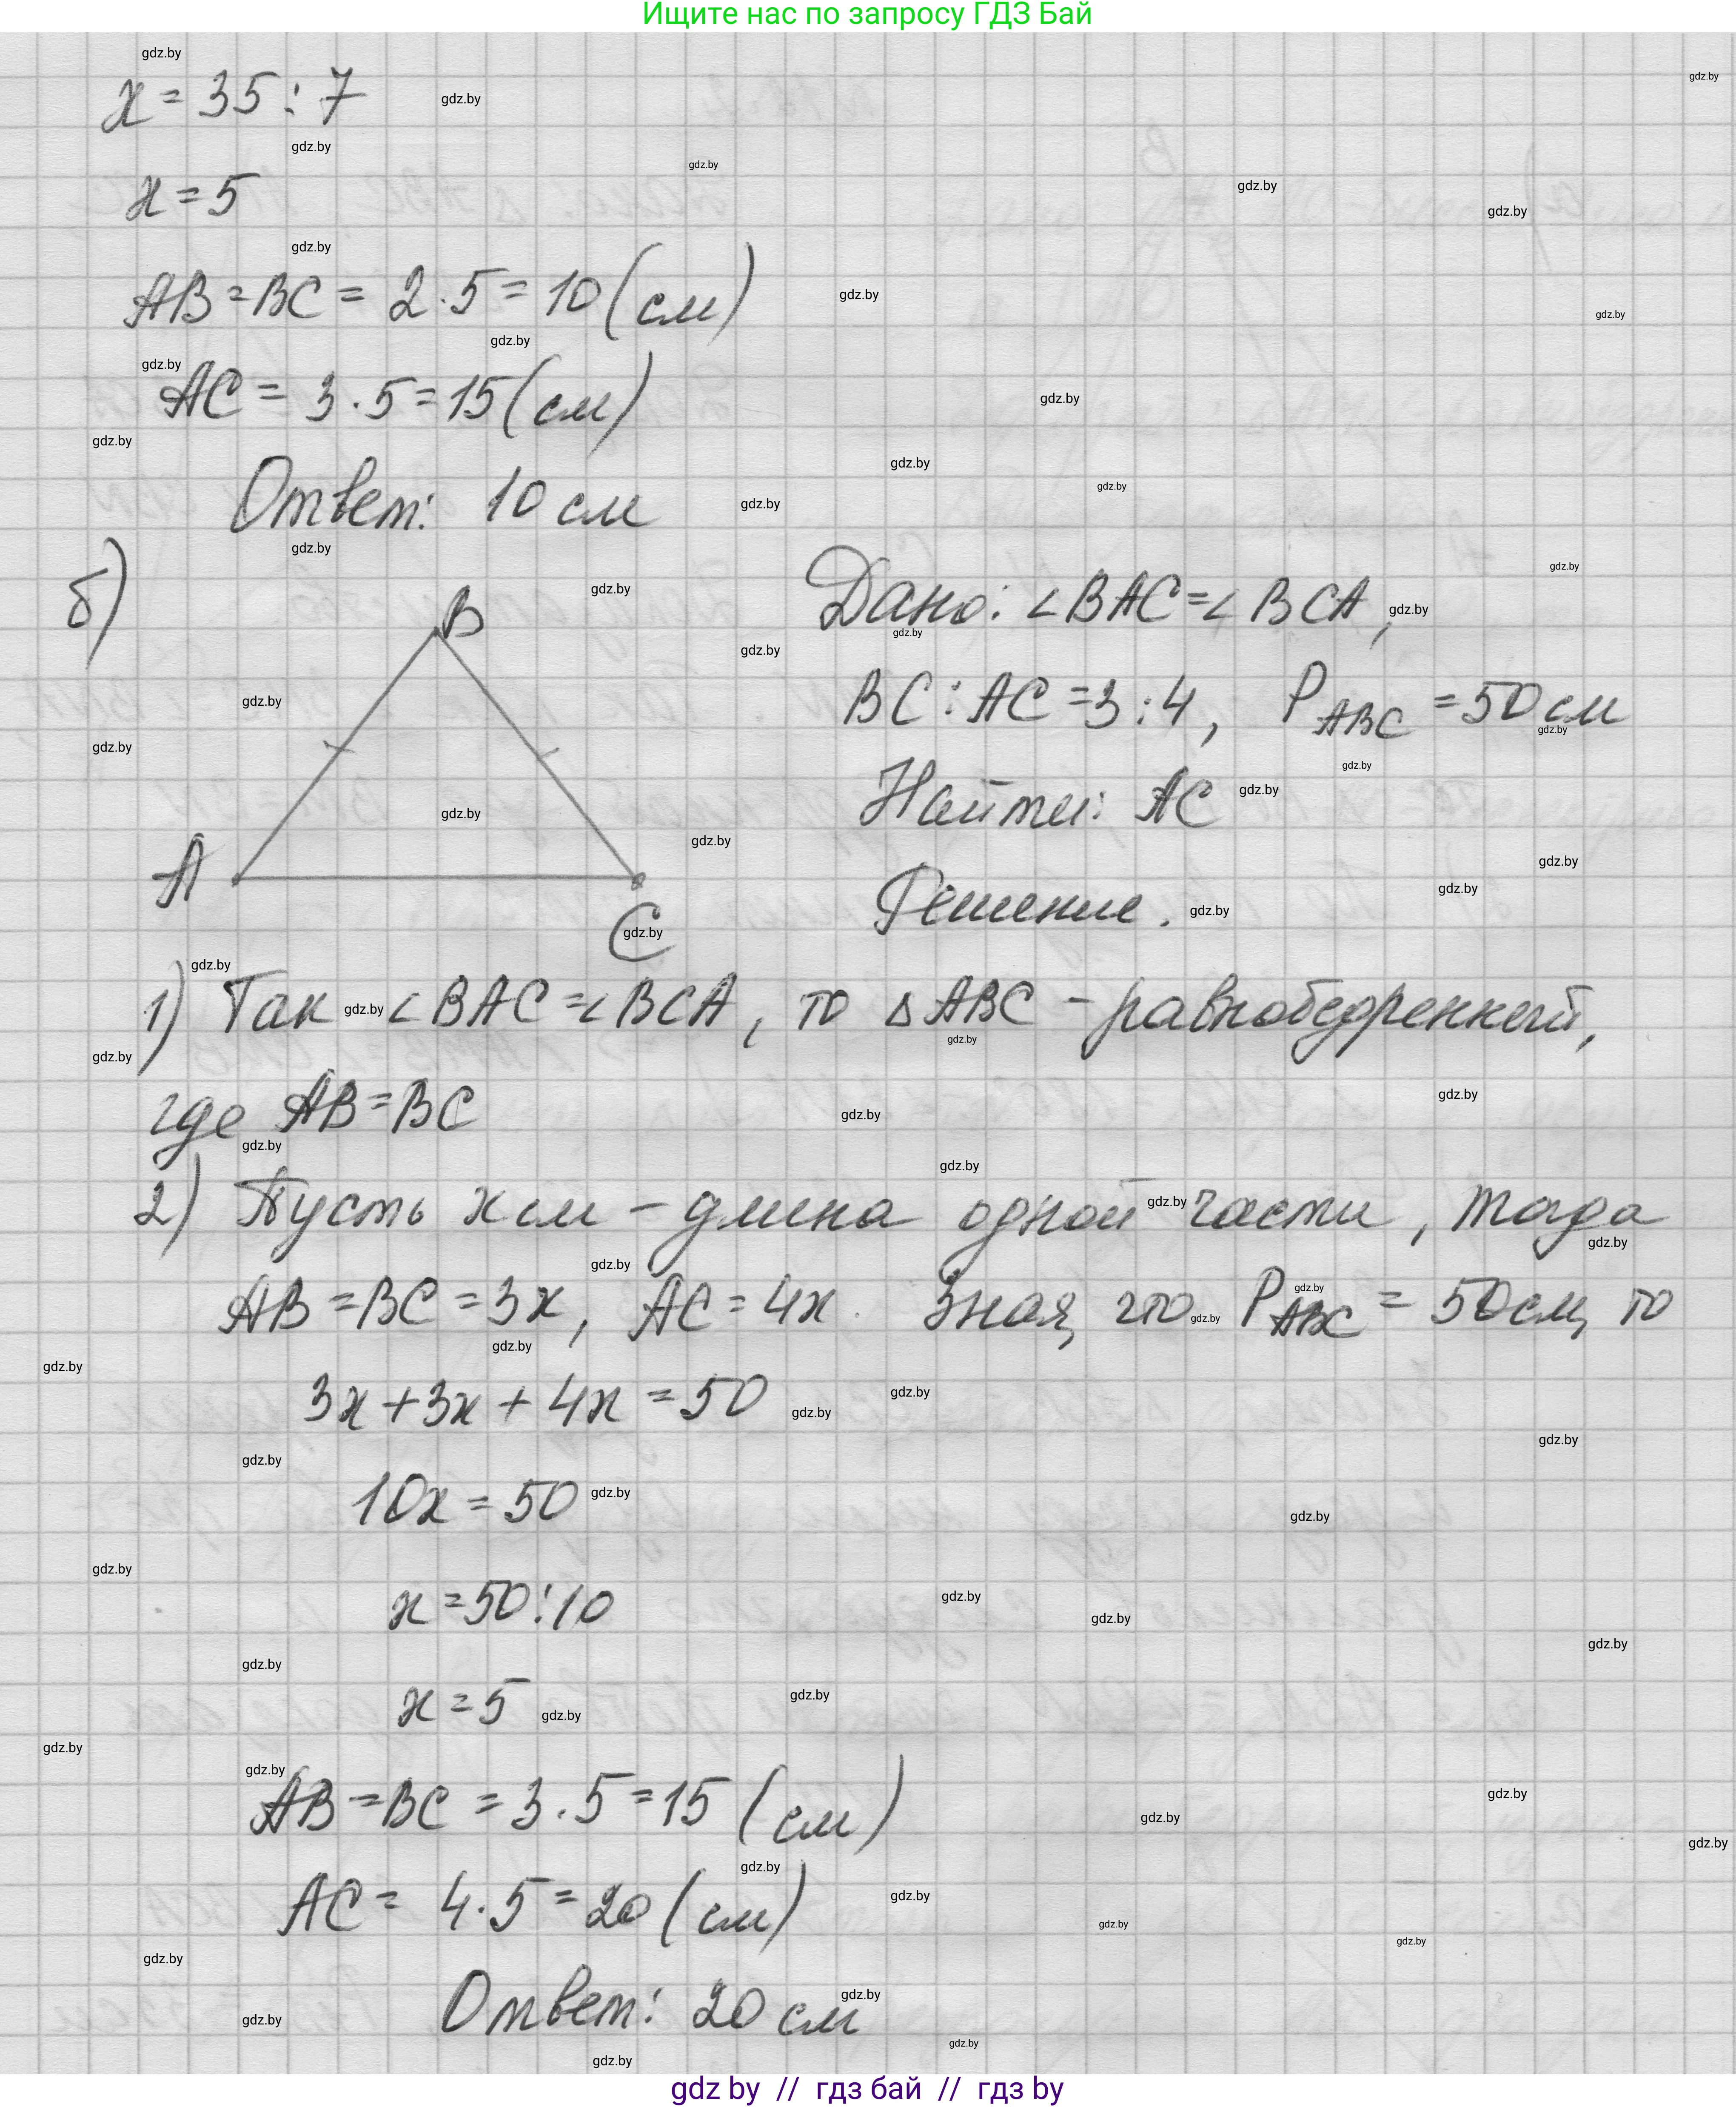 Ищите нас по запросу ГДЗ Бай
x = 35 : 7
x = 5
AB = BC = 2 · 5 = 10 (см)
AC = 3 · 5 = 15 (см)
Ответ: 10 см
б)
B
A
C
Дано: ∠BAC = ∠BCA,
BC : AC = 3 : 4, P ABC = 50 см
Найти: AC
Решение.
1) Так ∠BAC = ∠BCA, то △ABC - равнобедренный,
где AB = BC
2) Пусть x см - длина одной части, тогда
AB = BC = 3x, AC = 4x. Зная, что P ABC = 50 см, то
3x + 3x + 4x = 50
10x = 50
x = 50 : 10
x = 5
AB = BC = 3 · 5 = 15 (см)
AC = 4 · 5 = 20 (см)
Ответ: 20 см
gdz.by
gdz by // гдз бай // гдз by